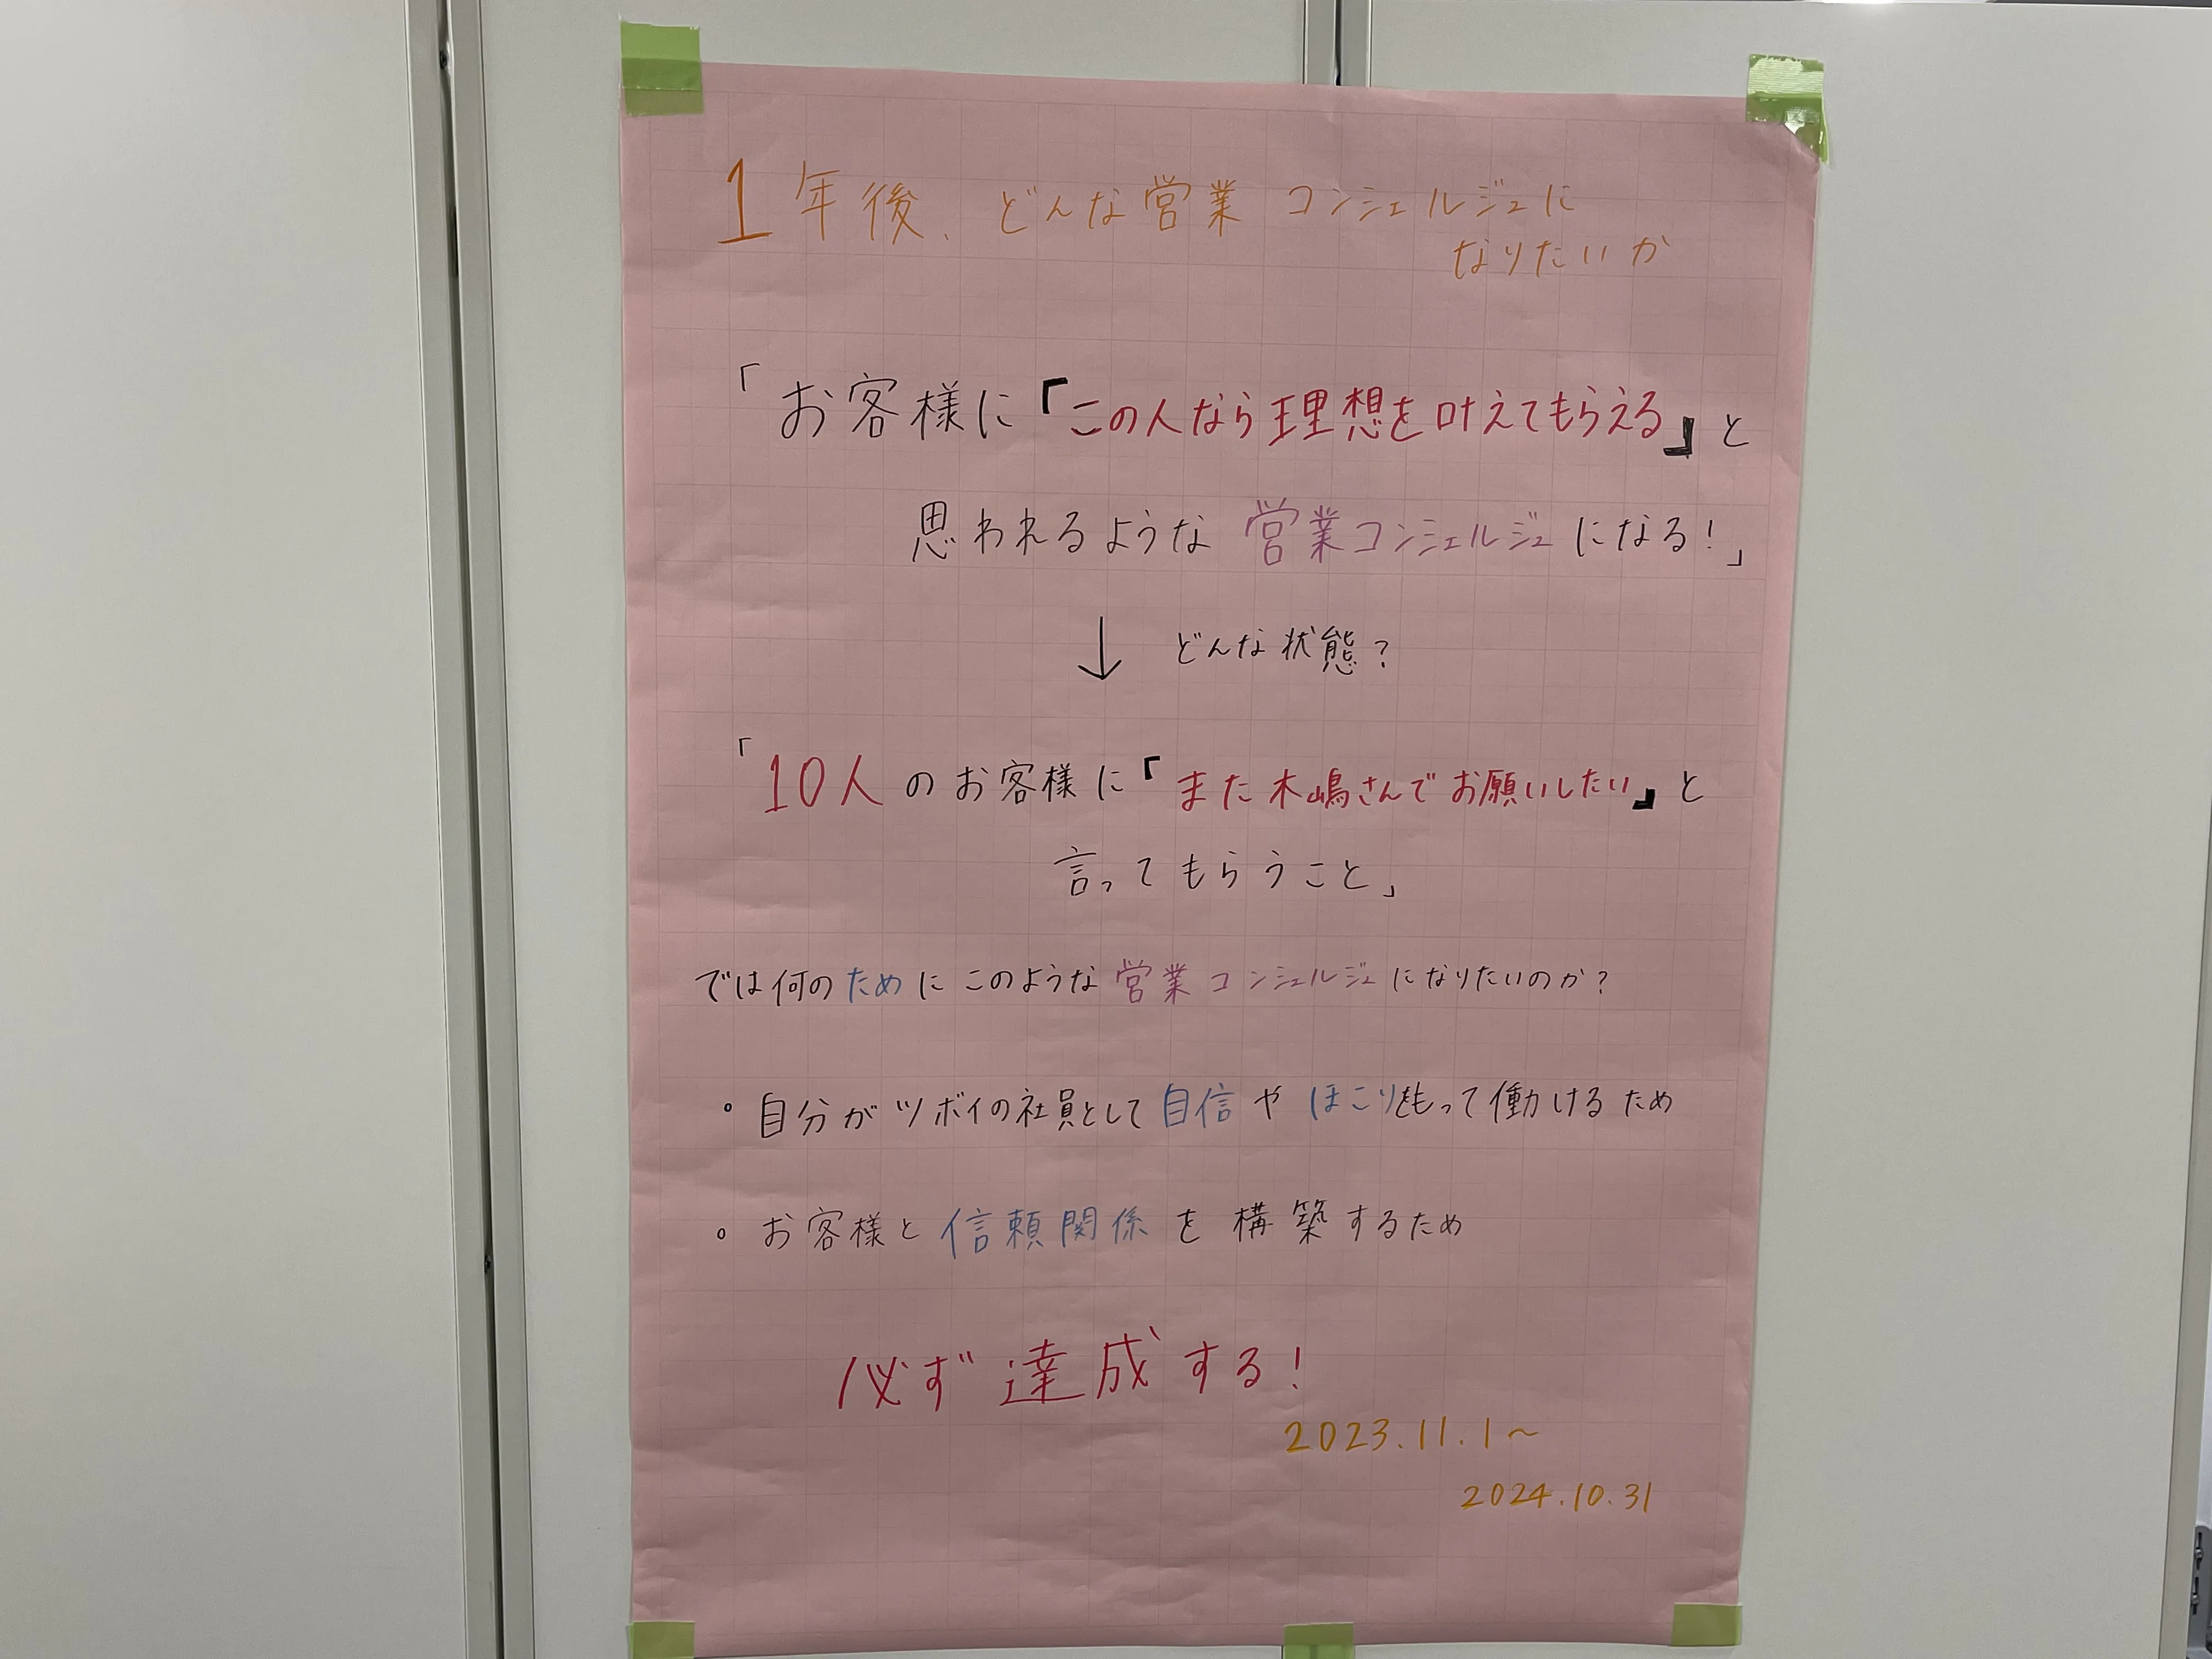 1年後、どんな営業コンシェルジュに
なりたいか
「お客様に「この人なら理想を叶えてもらえる」と
思われるような営業コンシェルジュになる!」
↓ どんな状態?
「10人のお客様に「また木嶋さんでお願いしたい」と
言ってもらうこと」
では何のためにこのような営業コンシェルジュになりたいのか?
・自分がツボイの社員として自信やほこりをもって働けるため
・お客様と信頼関係を構築するため
必ず達成する!
2023.11.1~
2024.10.31